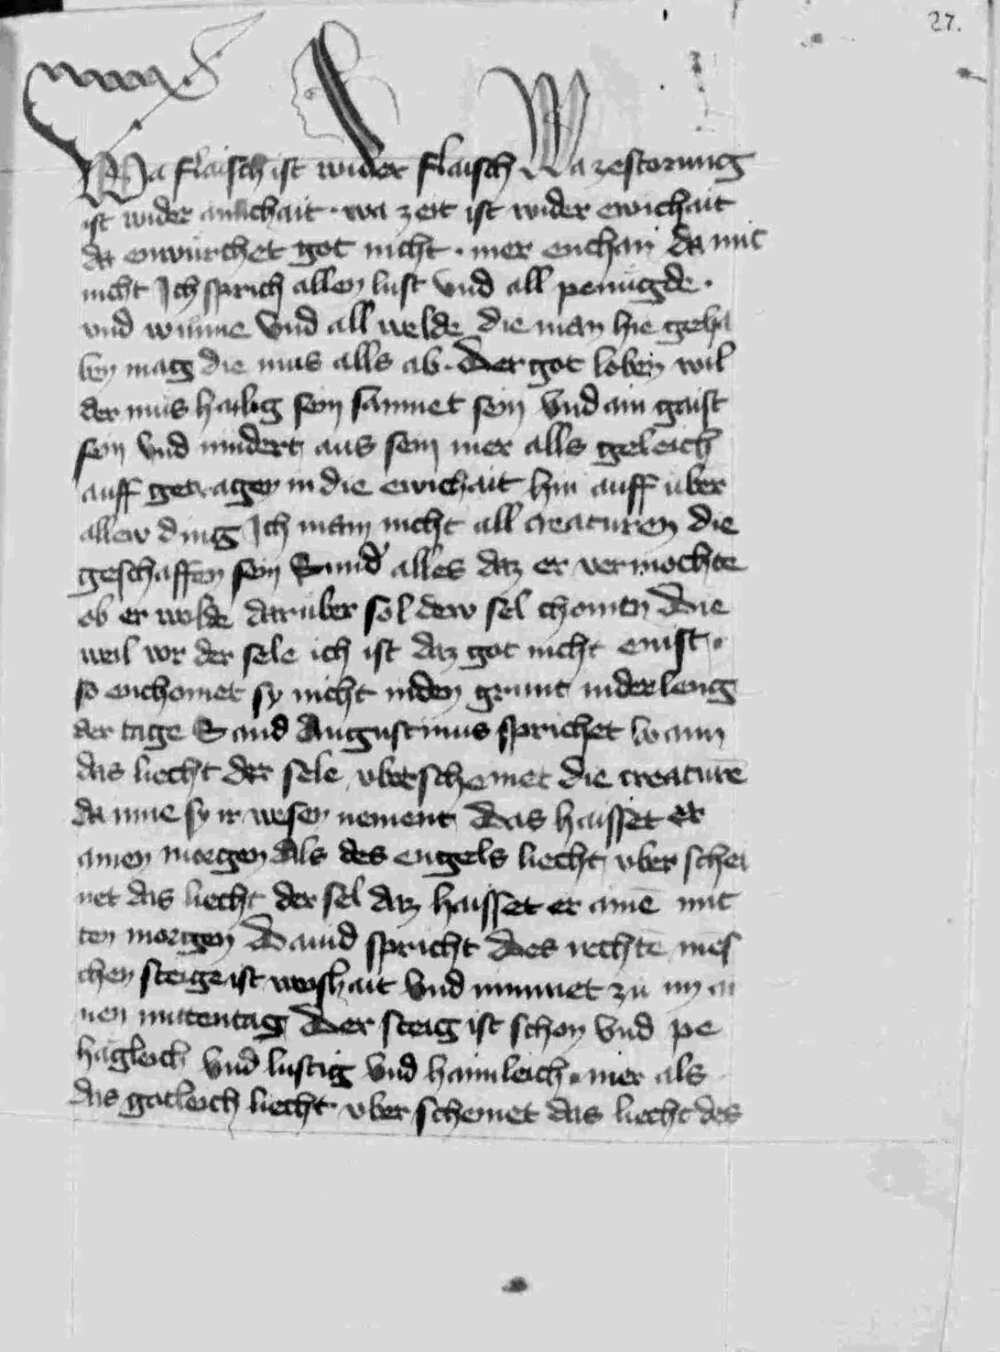 27.
Wa flaisch ist wider flaisch Wa zestorung
ist wider ainichait · wa zeit ist wider ewichait
da enwurchet got nicht · mer enchan da mit
nicht Ich sprich allen lust vnd all penugde ·
vnd wunne Vnd all welde die man hie geha
ben mag die mus alls ab · Der got loben wil
der mus hailig sein samnet sein Vnd ain gaist
sein Vnd nindert aus sein mer alls geleich
auff getragen in die ewichait hin auff uber
allew ding Ich main nicht all creaturen die
geschaffen sein Sund alles daz er vermochte
ob er wolde daruber sol dew sel chomen Die
weil vor der sele ich ist daz got nicht enist ·
so enchomet sy nicht in den grunt in der leng
der tage Sand Augustinus sprichet wann
das liecht der sele vberscheinet die creaturē
da inne sy ir wesen nement Das haisset er
ainen morgen Als des engels liecht vber schei
net das liecht der sel daz haisset er ainē mit
ten morgen Dauid spricht Des rechtē mēs
chen steige ist weishait Vnd nimmet zu in ai
nen mittentag Der steig ist schon Vnd pe
hagleich Vnd lustig Vnd haimleich · mer als
das gotleich liecht vber scheinet das liecht des